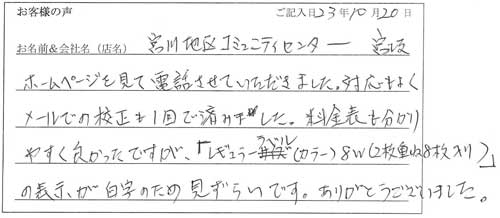 お客様の声 ご記入日23年10月20日
お名前&会社名(店名) 宮川地区コミュニティセンター 宮坂
ホームページを見て電話させていただきました。対応もよく
メールでの校正も1回で済みました。料金表も分かり
やすく良かったですが、「レギュラーラベル(カラー)8W(2枚重ね8枚入り)」
の表示が白字のため見ずらいです。ありがとうございました。